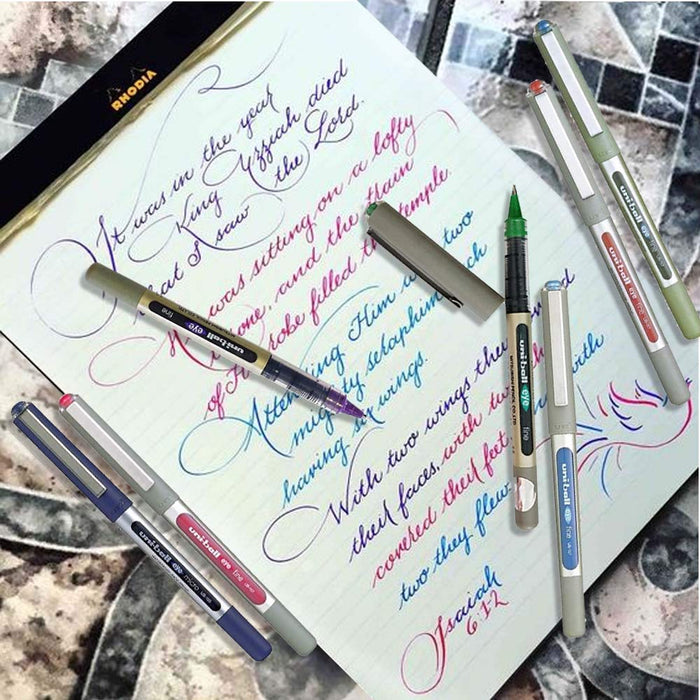 RHODIA
It was in the year
King Uzziah died
that I saw the Lord.
He was sitting on a lofty
throne, and the train
of His robe filled the temple.
Attending Him were two
mighty seraphim, each
having six wings.
With two wings they
their faces, with two
covered their feet, with
two they flew.
Isaiah
6:1-2
uni-ball eye fine
uni-ball eye micro
uni-ball eye fine
uni-ball eye fine
MITSUBISHI PENCIL CO. LTD
uni-ball eye fine
uni-ball eye fine
uni-ball eye